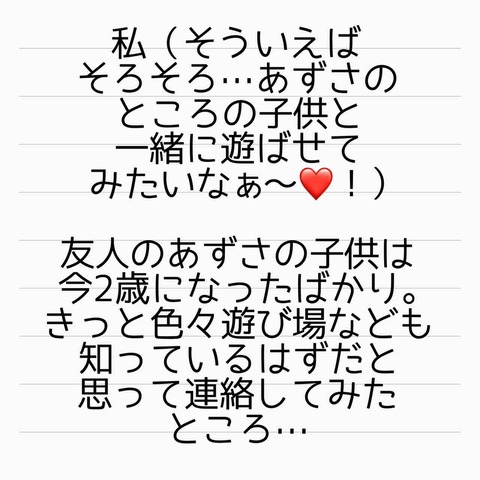 私（そういえば
そろそろ…あずさの
ところの子供と
一緒に遊ばせて
みたいなぁ〜❤️！）
友人のあずさの子供は
今2歳になったばかり。
きっと色々遊び場なども
知っているはずだと
思って連絡してみた
ところ…